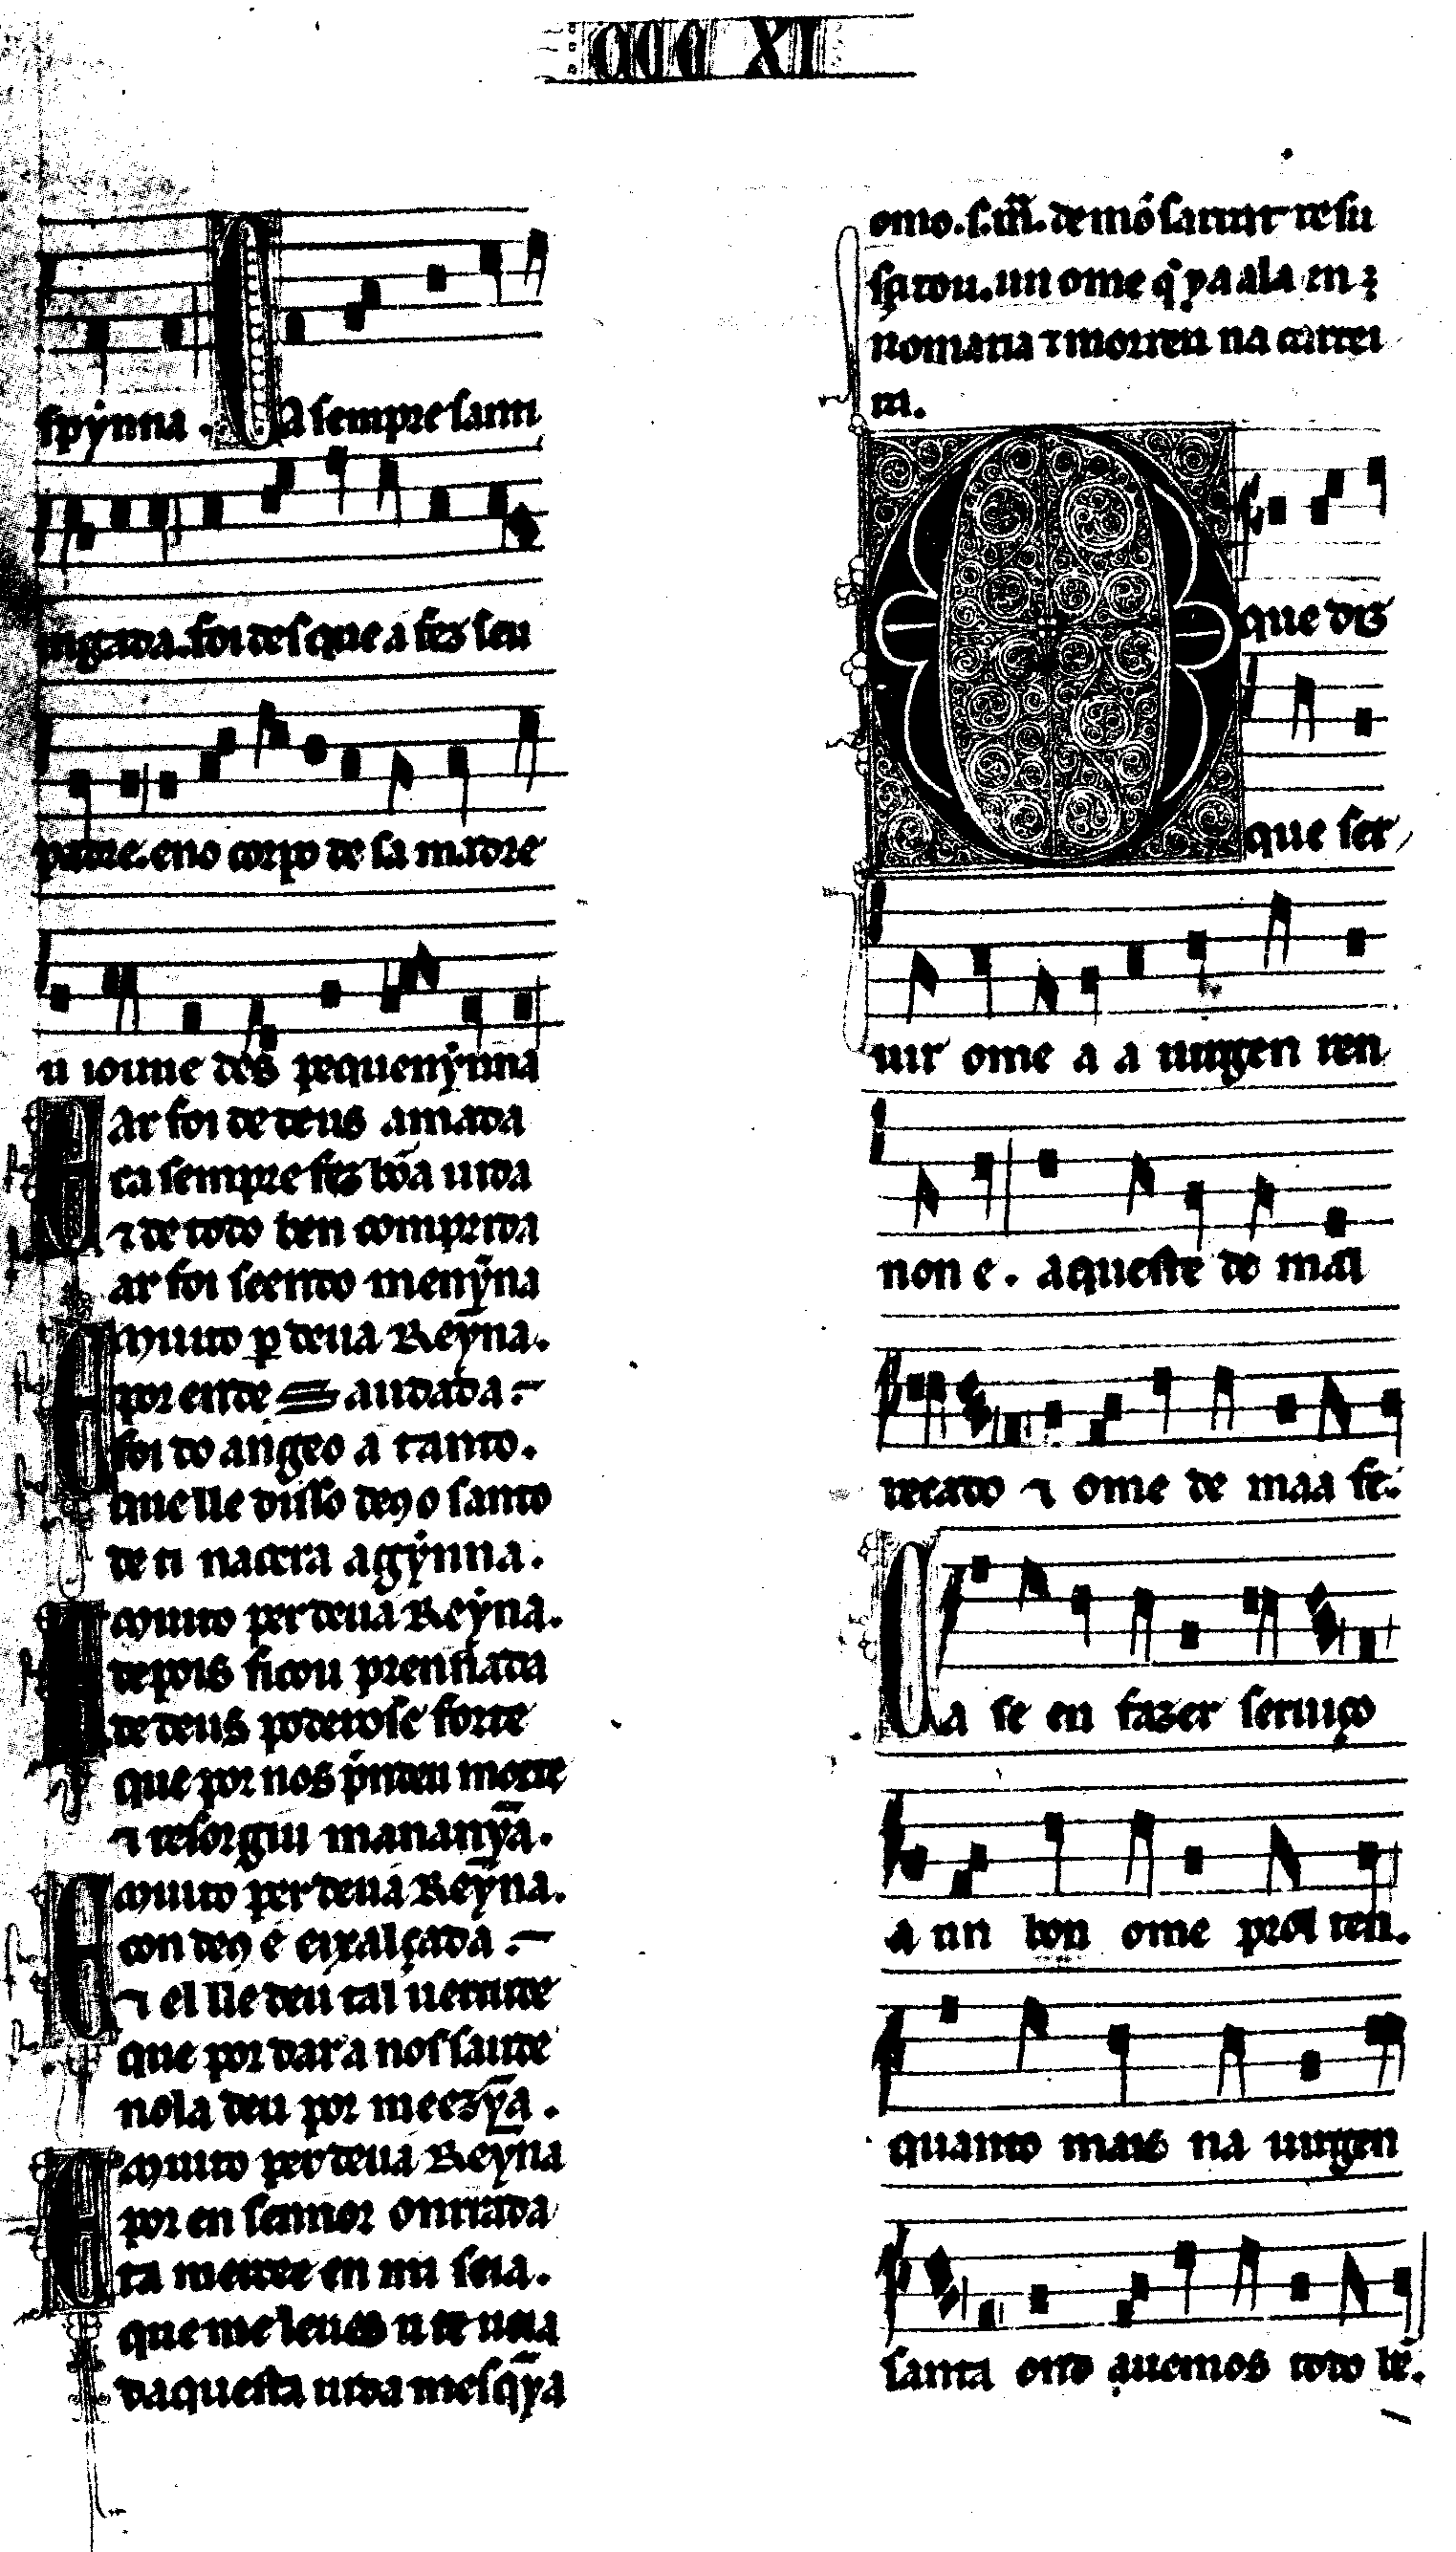 CCC XI
spỹnna. Ca sempre santi
uigada. foi des que a fez seu
padre. eno corpo de sa madre
u ioune des pequenỹnna
Ar foi de deus amada
ca sempre fez bõa uida
⁊ de todo ben comprida
ar foi seendo menỹna
Muito ꝑ deuá Reỹna.
por ende saudada
foi do angeo a tanto.
que lle disso de9 o santo
de ti nacera agỹnna.
Muito per deuá Reỹna.
depois ficou prennada
de deus poderos e forte
que por nos p̃ndeu morte
⁊ resorgiu mananỹa.
Muito per deuá Reỹna.
con de9 é eixalçada
⁊ el lle deu tal uertude
que por dar a nos saude
nola deu por meezỹa.
Muito per deuá Reỹna
por en sennor onrrada
ta mercee en mi seia.
que me leues u te ueia
daquesta uida mesqỹa
omo. s. m̃. de mõ sarrat resu
sçitou. un ome q̃ ya alá en
romaria ⁊ morreu na carrei
ra.
O que diz
que ser
uir ome a a uirgen ren
non e. aqueste de mal
recado ⁊ ome de maa fe.
Ca se en fazer seruiço
a un bon ome prol ten.
quanto mais na uirgen
santa ond auemos todo bẽ.